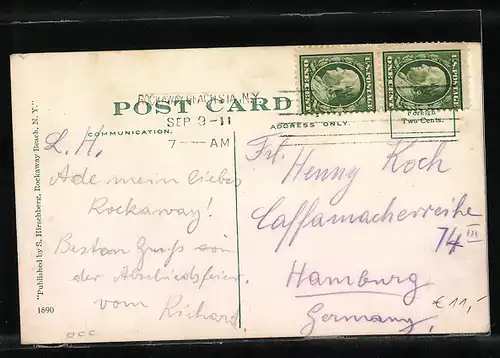 ROCKAWAY BEACH STA. N.Y.
POST CARD
SEP 9-11
7-AM
COMMUNICATION.
ADDRESS ONLY.
Foreign
Two Cents.
U.S. POSTAGE
ONE CENT
U.S. POSTAGE
ONE CENT
L. H.
Ade mein liebes
Rockaway!
Besten Gruß von
der Abschiedsfeier
vom Richard
Frl.
Henny Koch
Caffamacherreihe
74 III
Hamburg
Germany
€ 11,-
"Published by S. Hirschberg, Rockaway Beach, N. Y."
1890
occ